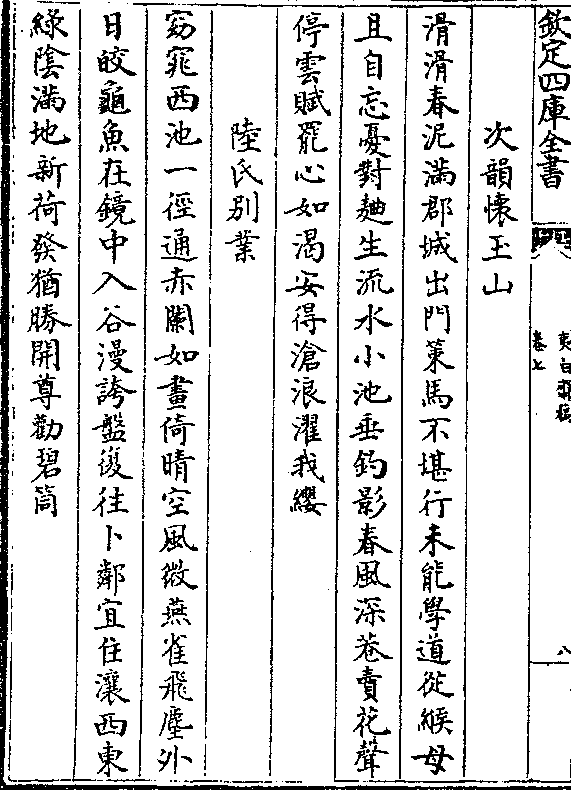 欽定四庫全書
夷白齋稿
卷七
八
次韻懷玉山
滑滑春泥滿郡城出門策馬不堪行未能學道從緱母
且自忘憂對麯生流水小池垂釣影春風深巷賣花聲
停雲賦罷心如渴安得滄浪濯我纓
陸氏别業
窈窕西池一徑通赤闌如畫倚晴空風微燕雀飛塵外
日皎龜魚在鏡中入谷漫誇盤復往卜鄰宜住瀼西東
綠陰滿地新荷發猶勝開尊勸碧筒